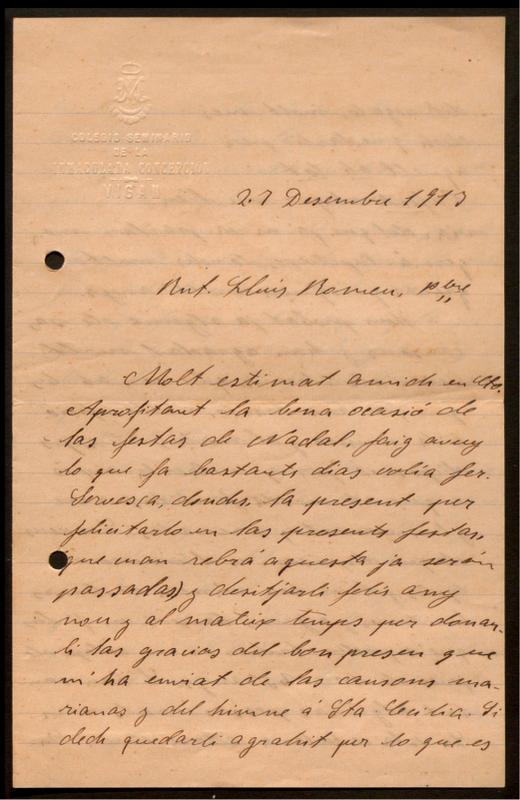 COLEGIO SEMINARIO
DE LA
INMACULADA CONCEPCION
VIGAN
27 Desembre 1913
Rnt. Lluis Romeu, pbre
Molt estimat amich en Cto.
Aprofitant la bona ocasió de
las festas de Nadal, faig avuy
lo que fa bastants dias volía fer.
Servesca, donchs, la present per
felicitarlo en las presents festas,
que uman rebrá aquesta ja serán
passadas) y desitjarli felis any
nou y al mateix temps per donar-
li las gracias del bon present que
m'ha enviat de las cansons ma-
rianas y del himne á Sta Cecilia. Li
dech quedarli agrahit per lo que es